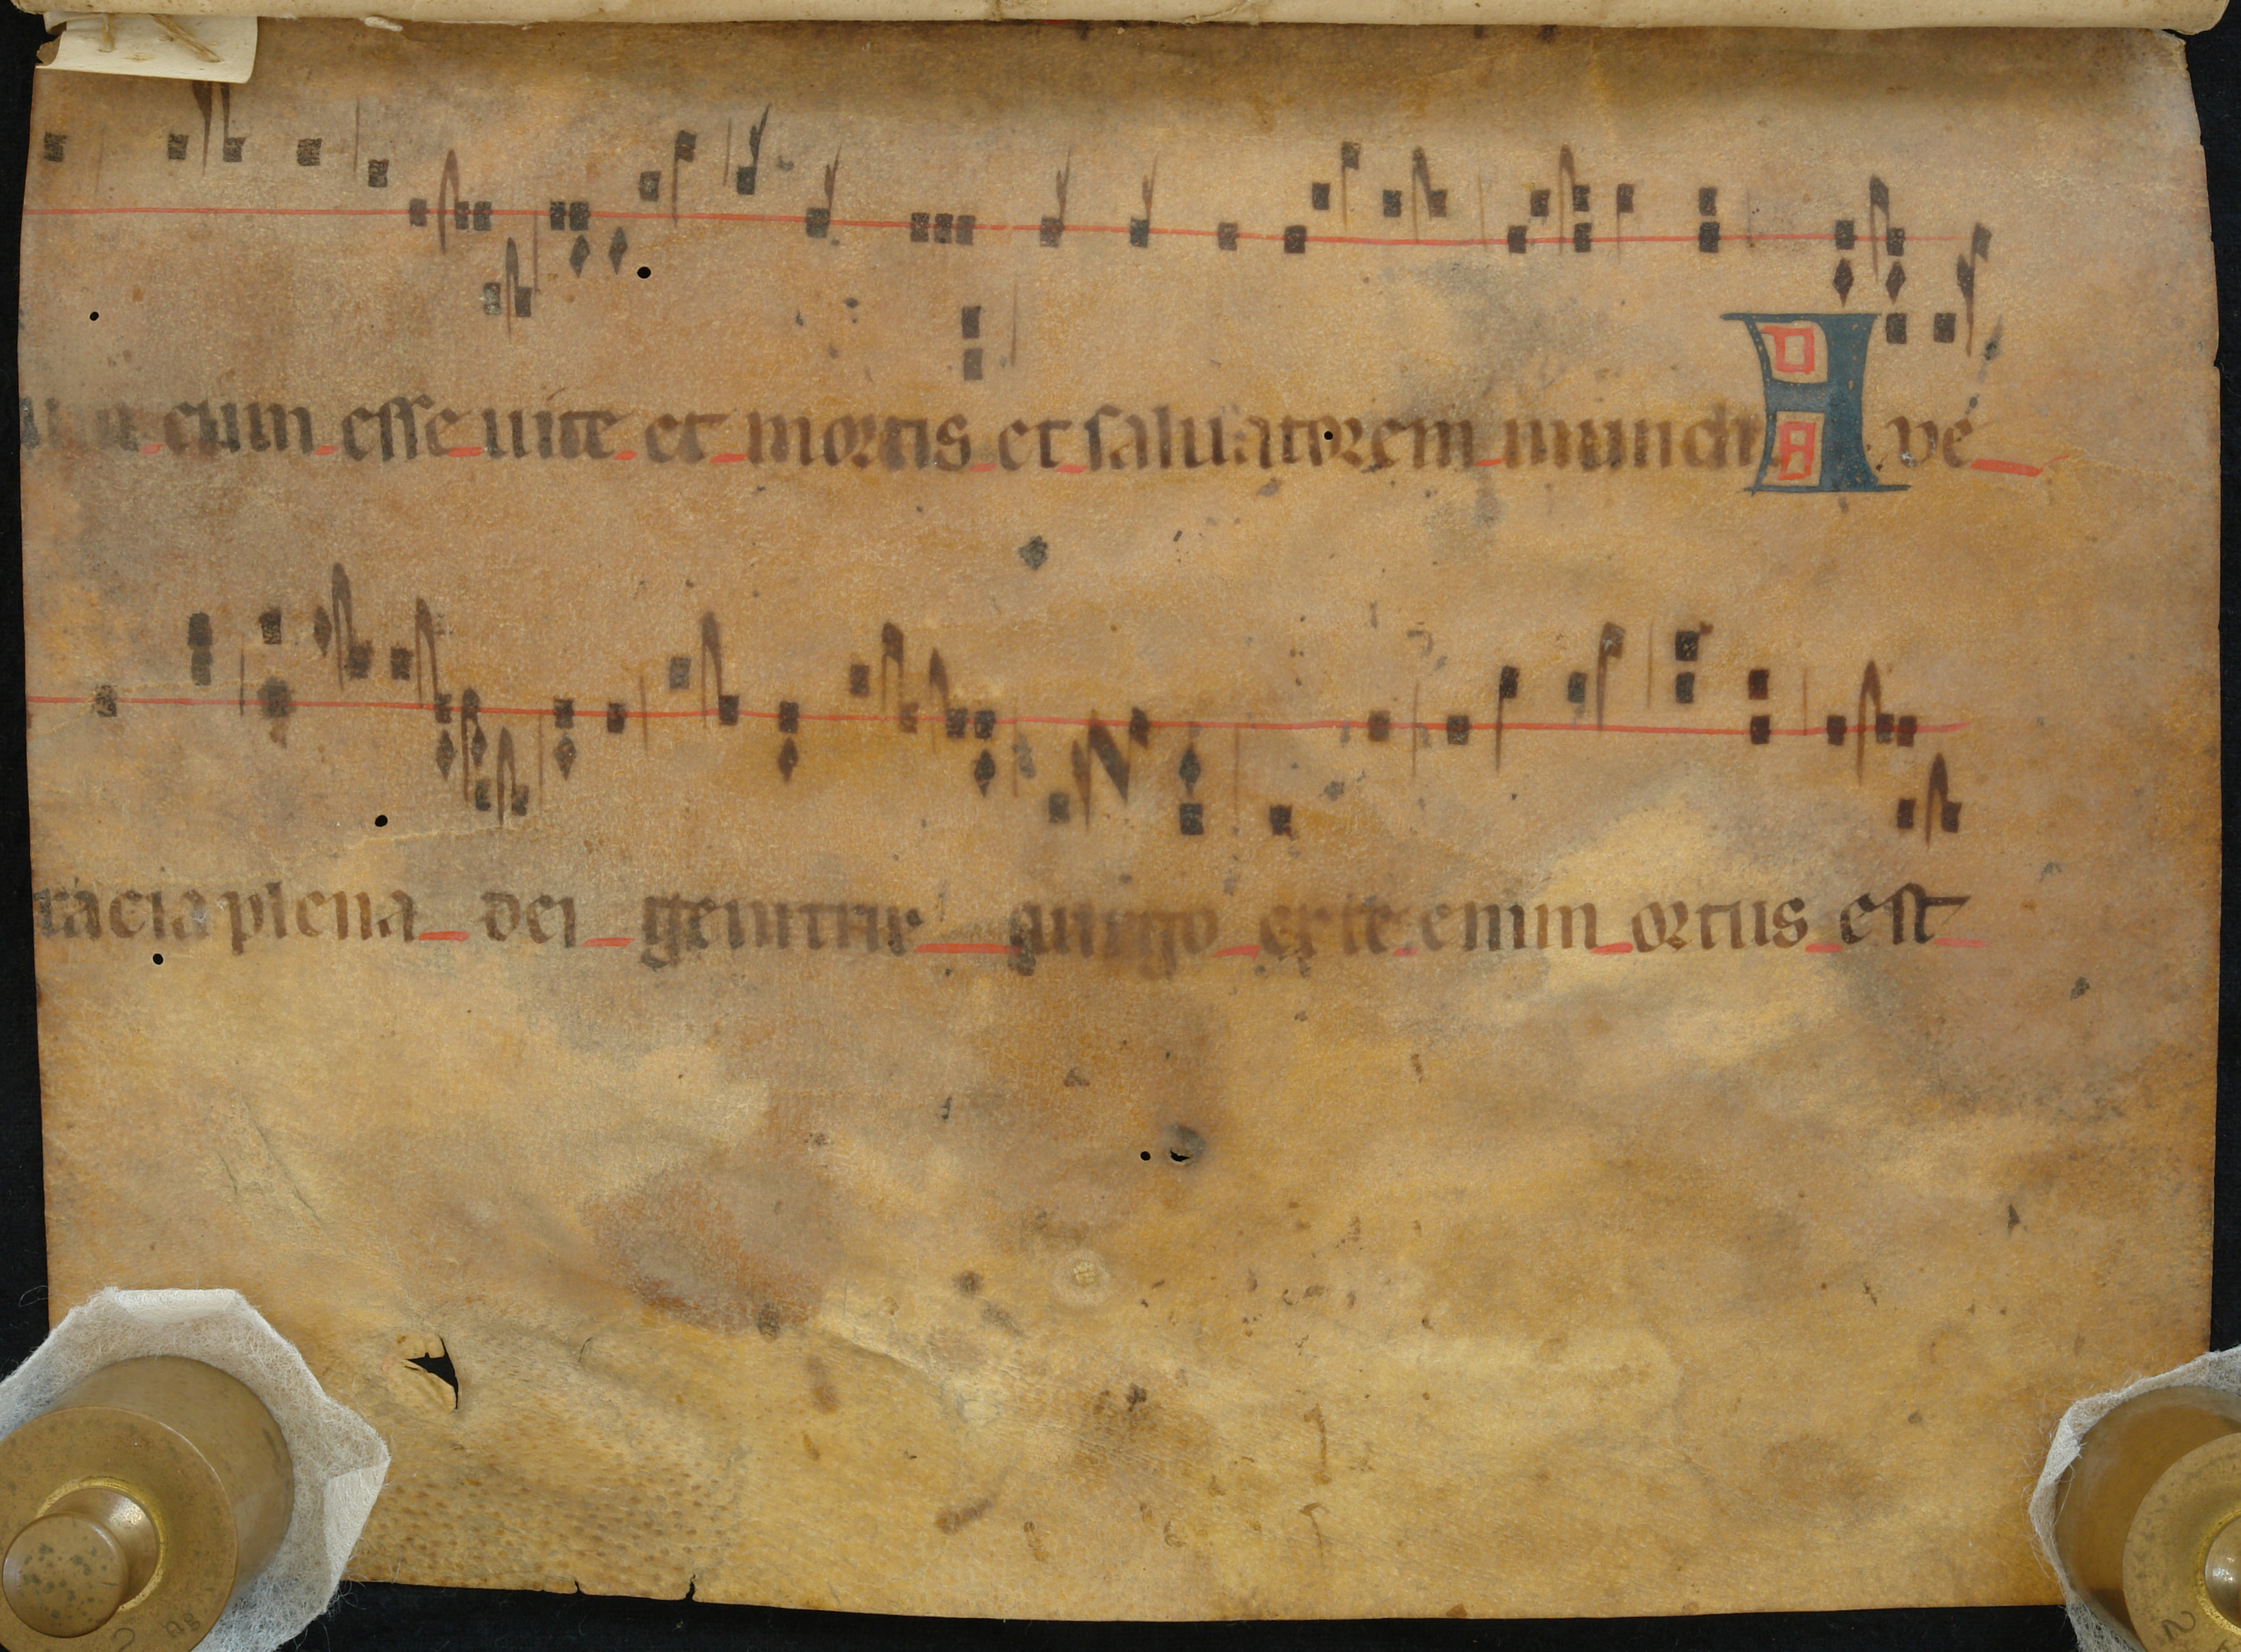 cum esse uite et mortis et saluatorem mundi Ave
racia plena dei genitrix uirgo ex te enim ortus est